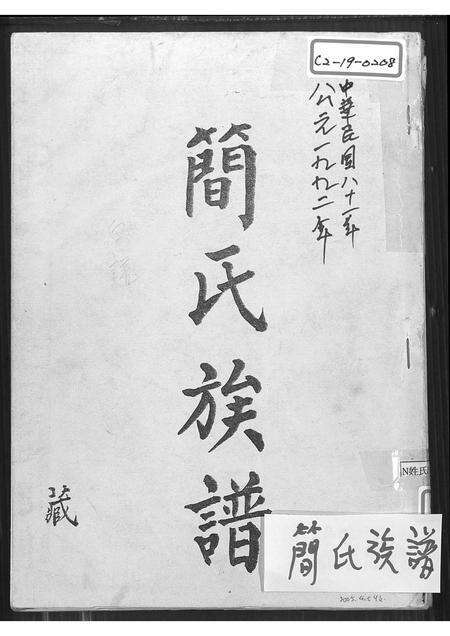 C2-19-0208
中華民國八十一年
公元一九九二年
簡氏族譜
藏
N姓氏
簡氏族譜